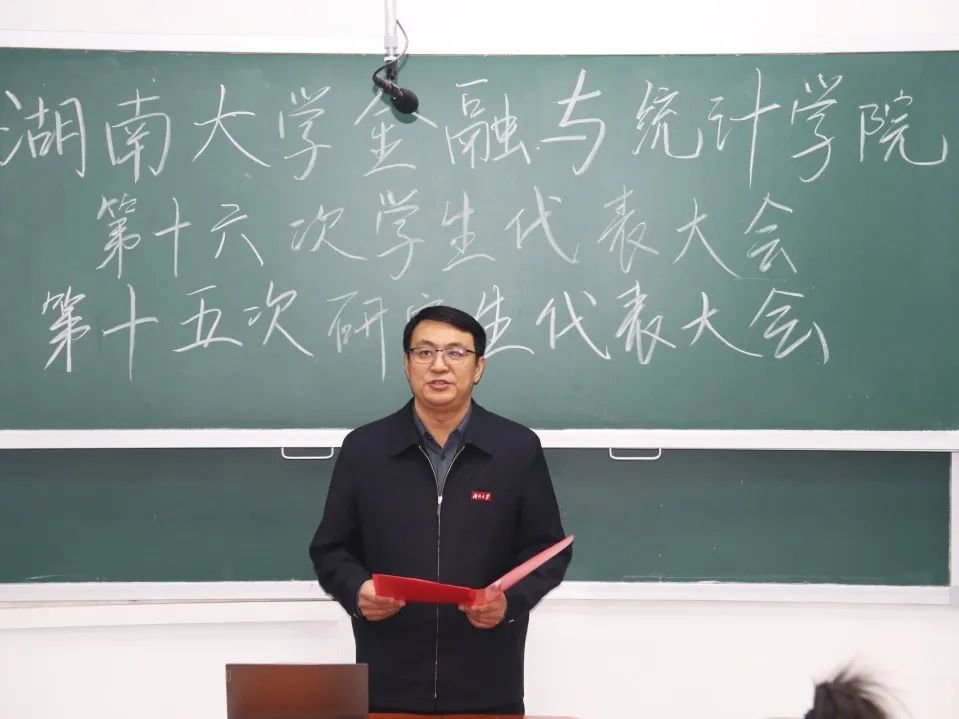 湖南大学金融与统计学院
第十六次学生代表大会
第十五次研究生代表大会
湖南大学